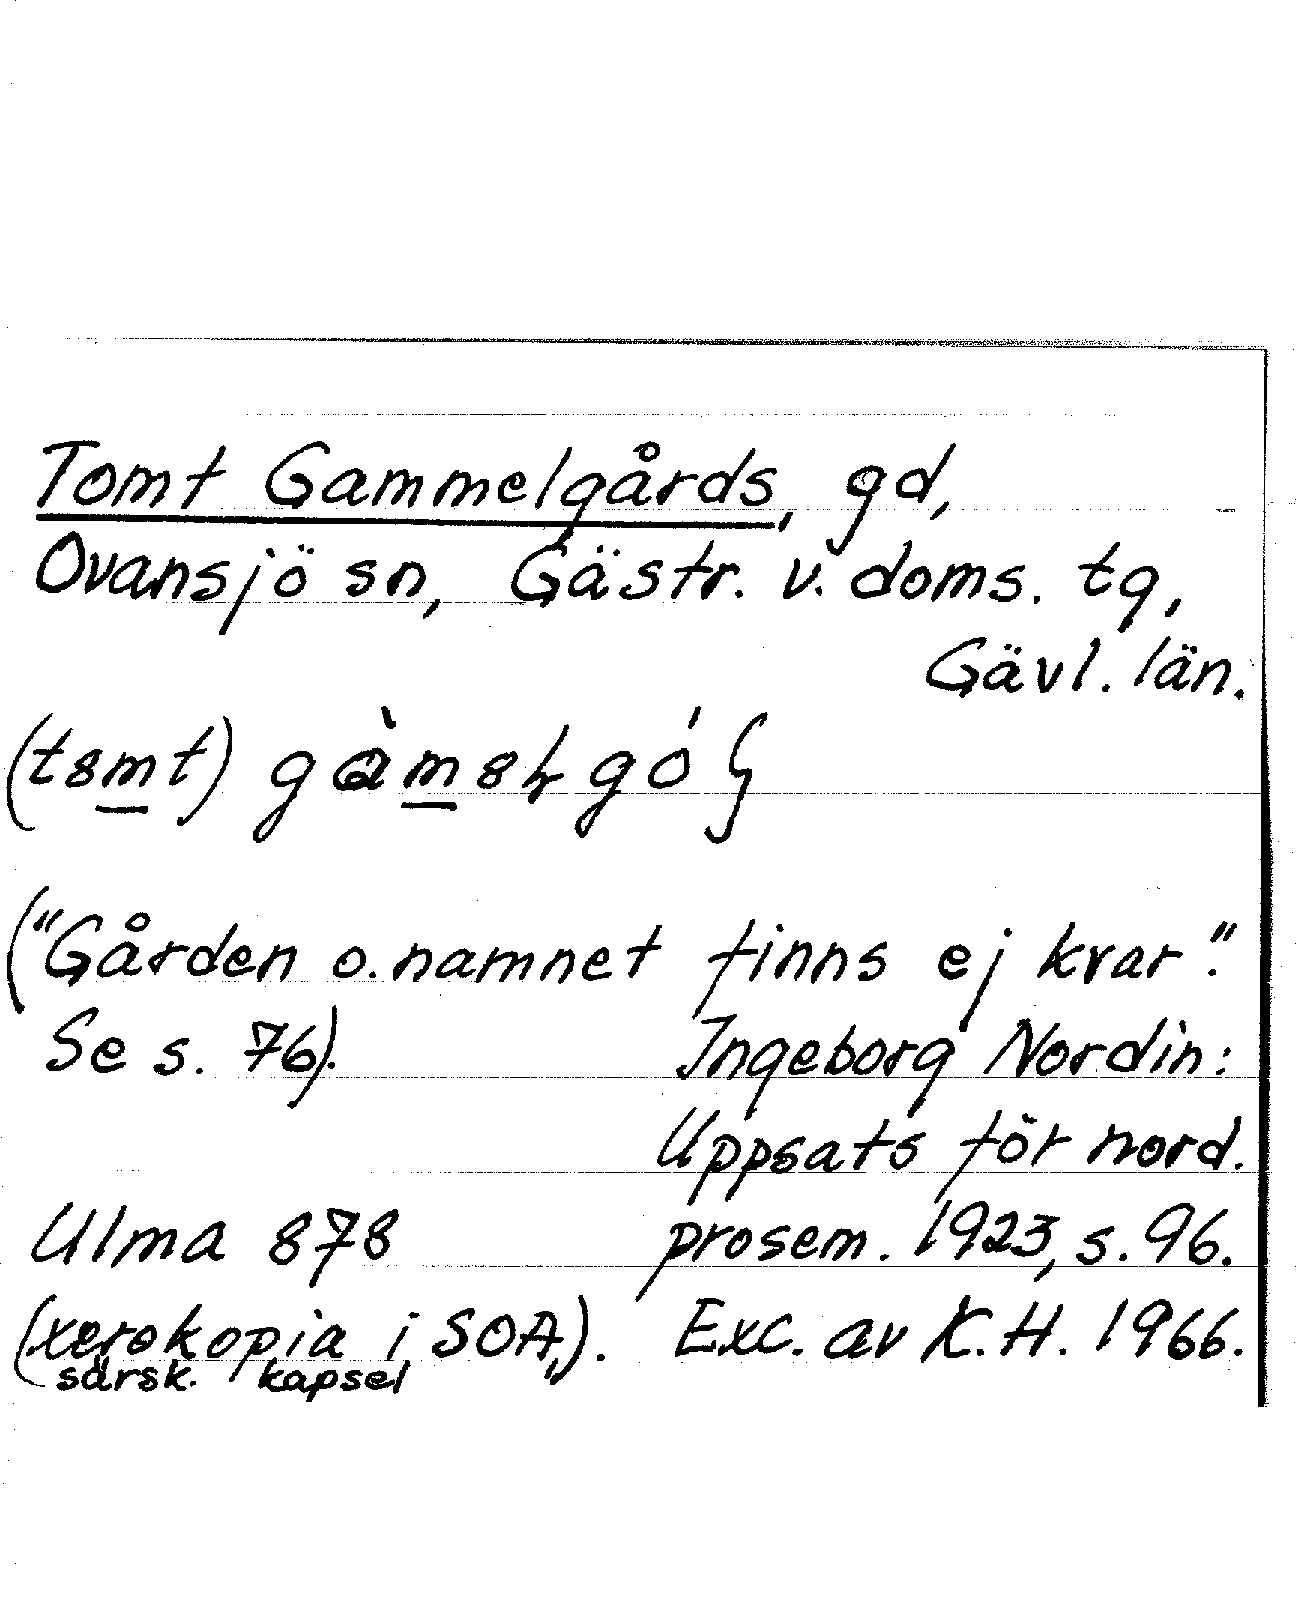 Tomt Gammelgårds, gd,
Ovansjö sn, Gästr. v. doms. tg,
Gävl. län.
("Gården o. namnet finns ej kvar".
Se s. 76).
Ingeborg Nordin:
Uppsats för nord.
Ulma 878 prosem. 1923, s. 96.
(xerokopia i SOA,). Exc. av K.H. 1966.
särsk. kapsel